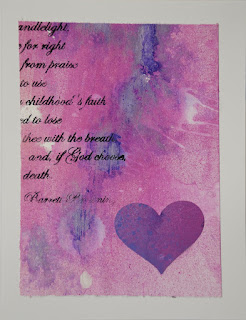 andlelight,
e for right
from praise
to use
childhood's faith
ed to lose
thee with the breath
and, if God choose,
death.
Barrett